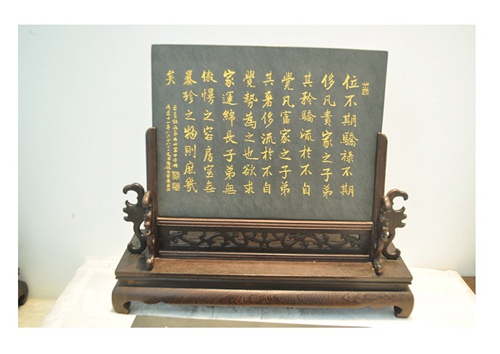 位不期驕祿不期
侈凡貴家之子弟
其矜驕流於不自
覺凡富家之子弟
其奢侈流於不自
覺勢為之也欲求
家運綿長子弟無
傲慢之容房室無
暴珍之物則庶幾
矣